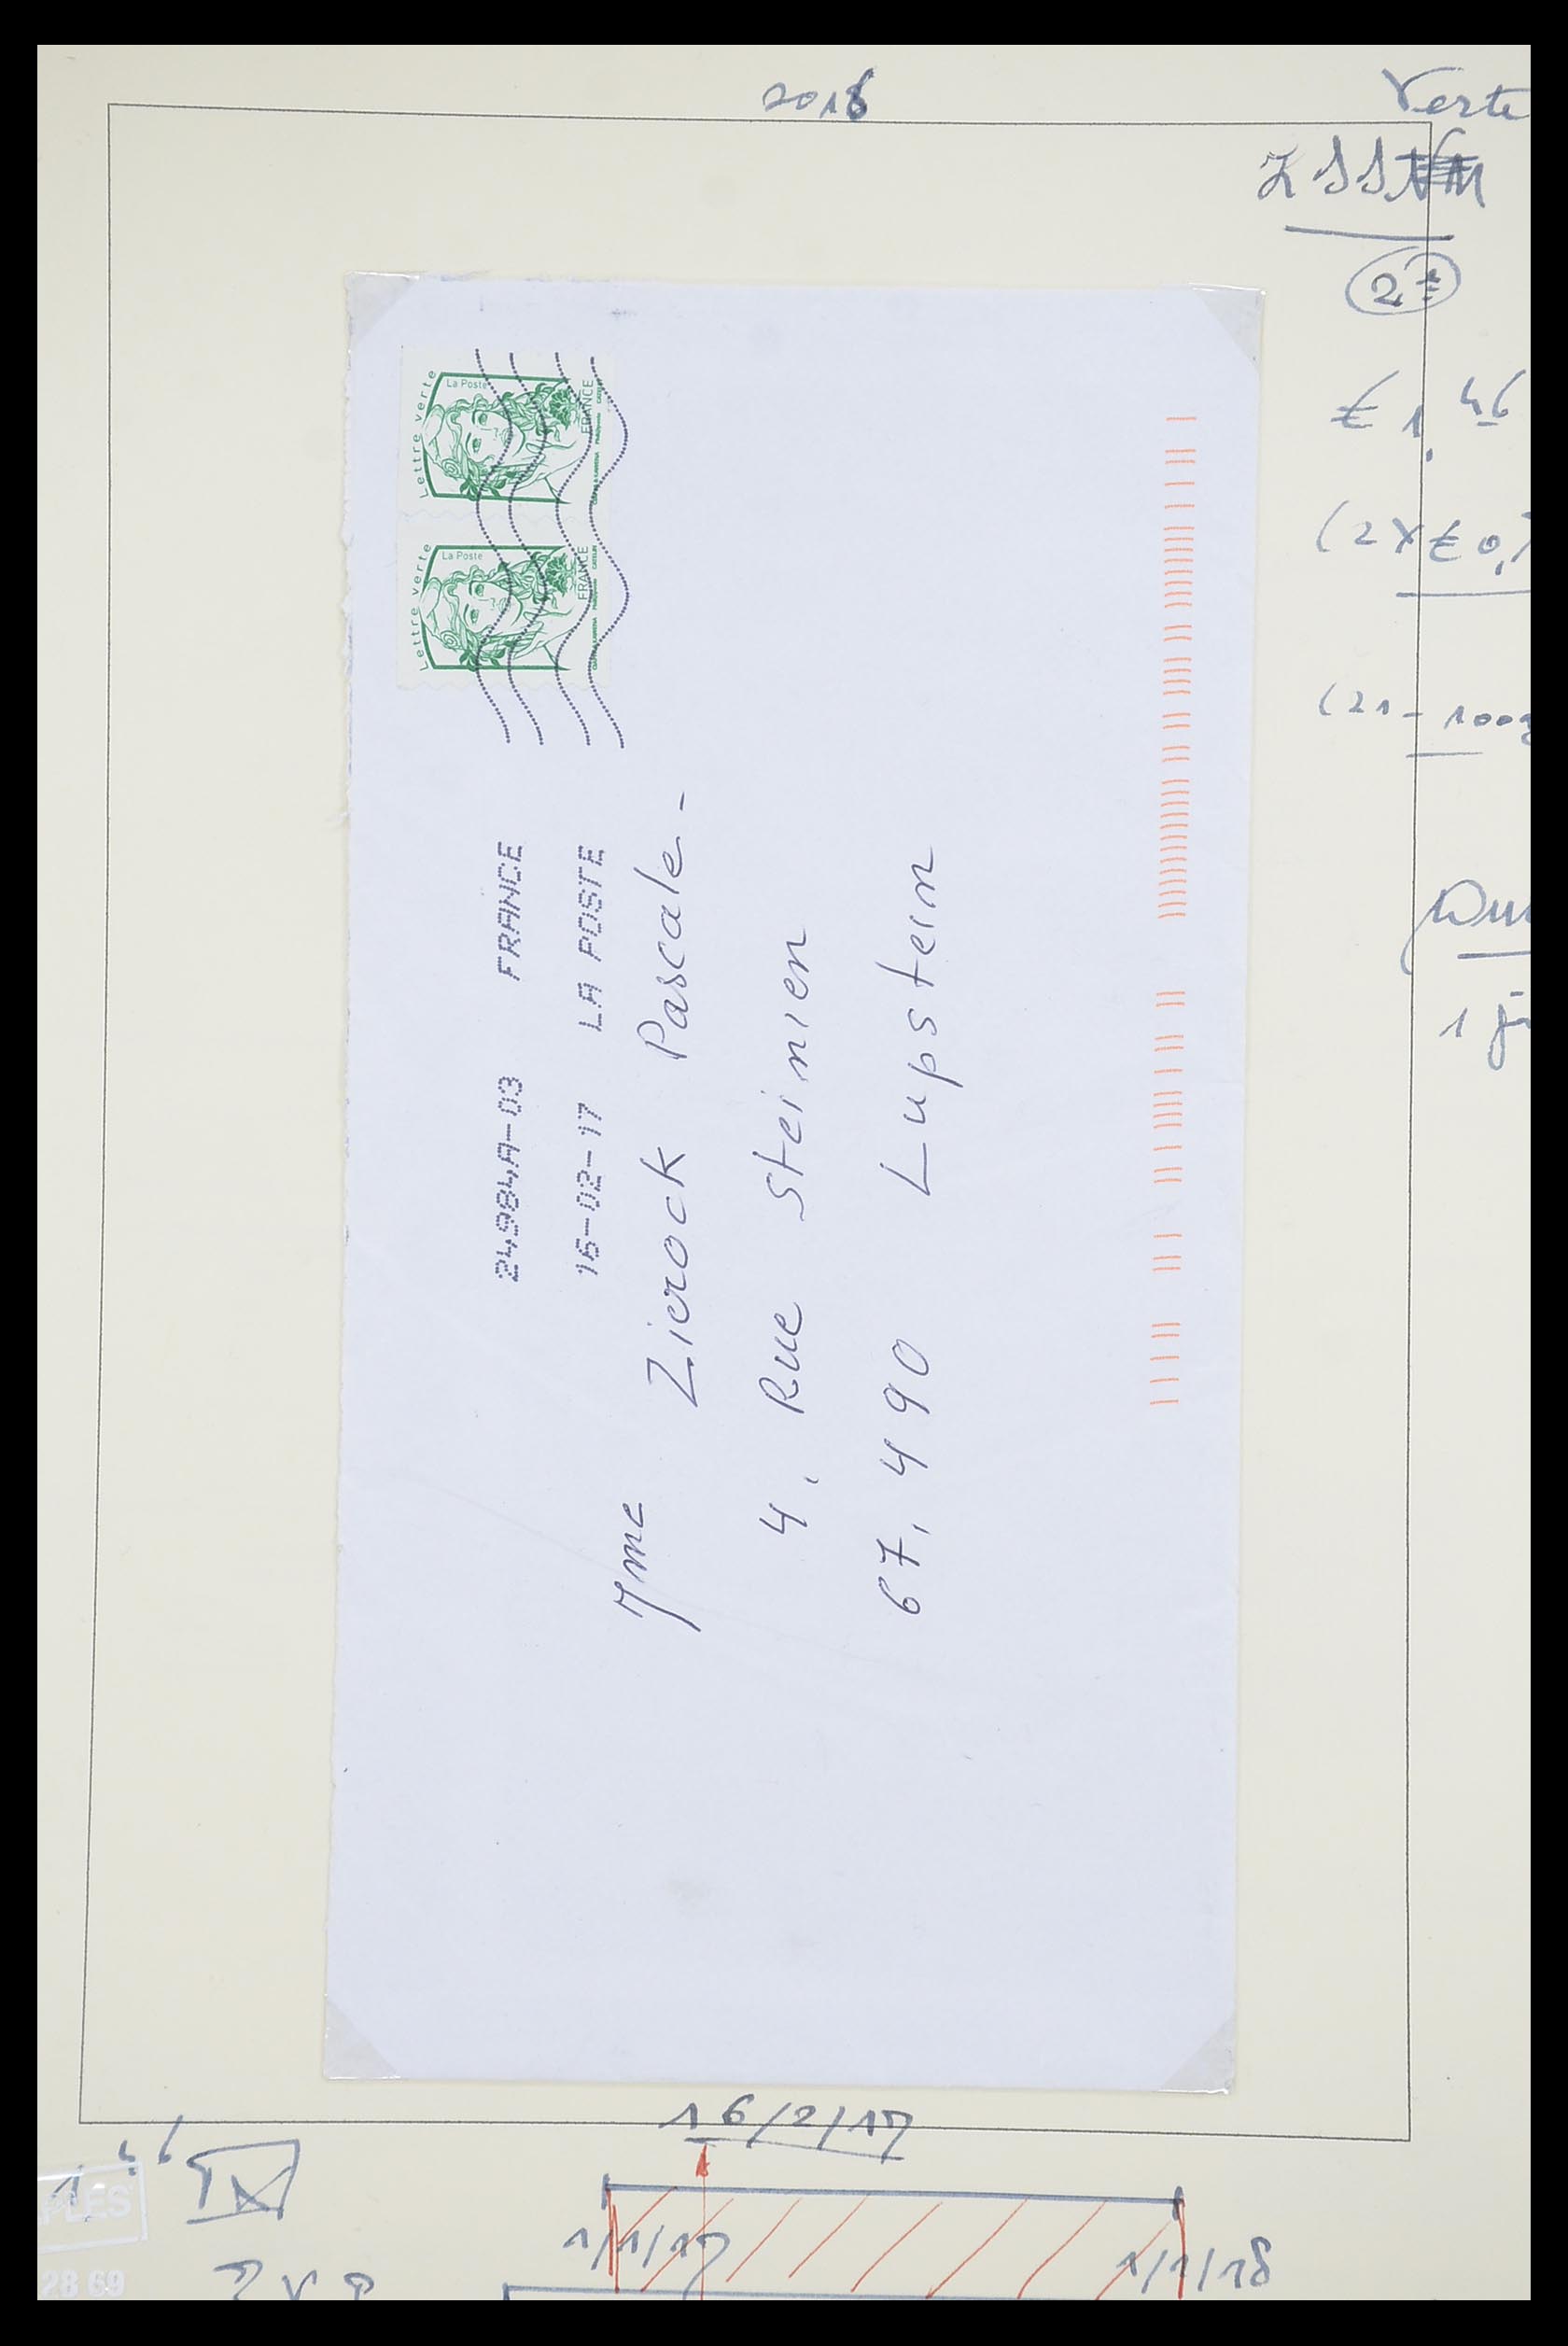 2018
Verte
2
€ 1,46
(2 x € 0,7
(21 - 100g
1 j
Lettre verte
La Poste
FRANCE
Lettre verte
La Poste
FRANCE
24984A-03 FRANCE
16-02-17 LA POSTE
Mme Zierock Pascale -
4, Rue Steinien
67,490 Lupstein
16/2/17
1,46
1/1/17
1/1/18
PLES
28 69